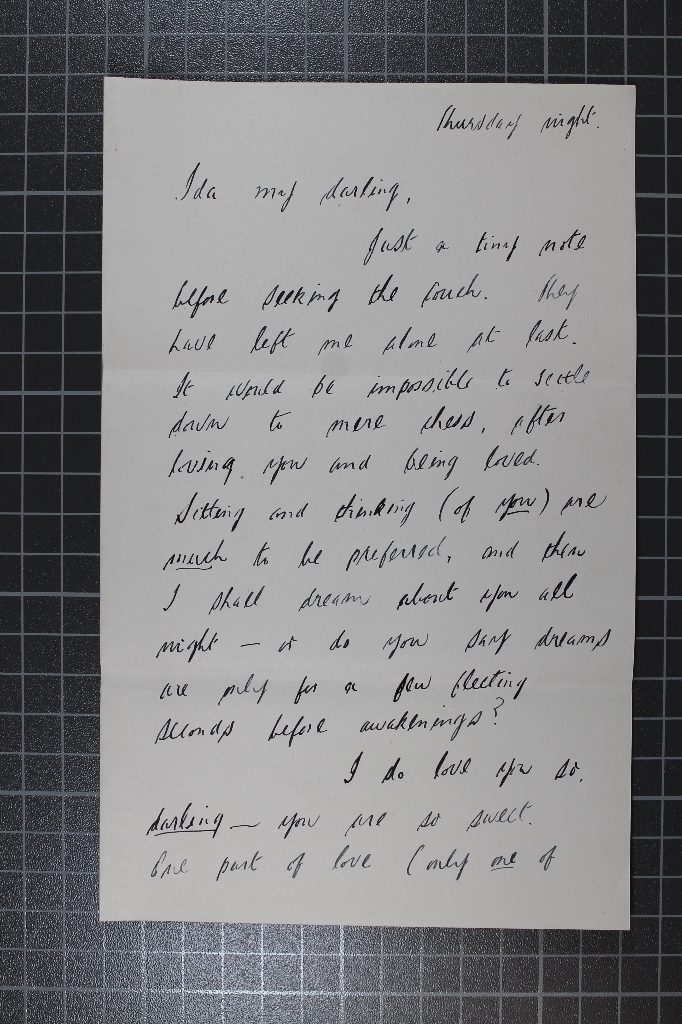 Thursday night.
Ida my darling,
Just a tiny note
before seeking the couch. They
have left me alone at last.
It would be impossible to settle
down to mere chess, after
loving you and being loved.
Sitting and thinking (of you) are
much to be preferred, and then
I shall dream about you all
night — or do you say dreams
are only for a few fleeting
seconds before awakenings?
I do love you so,
darling — you are so sweet.
One part of love (only one of